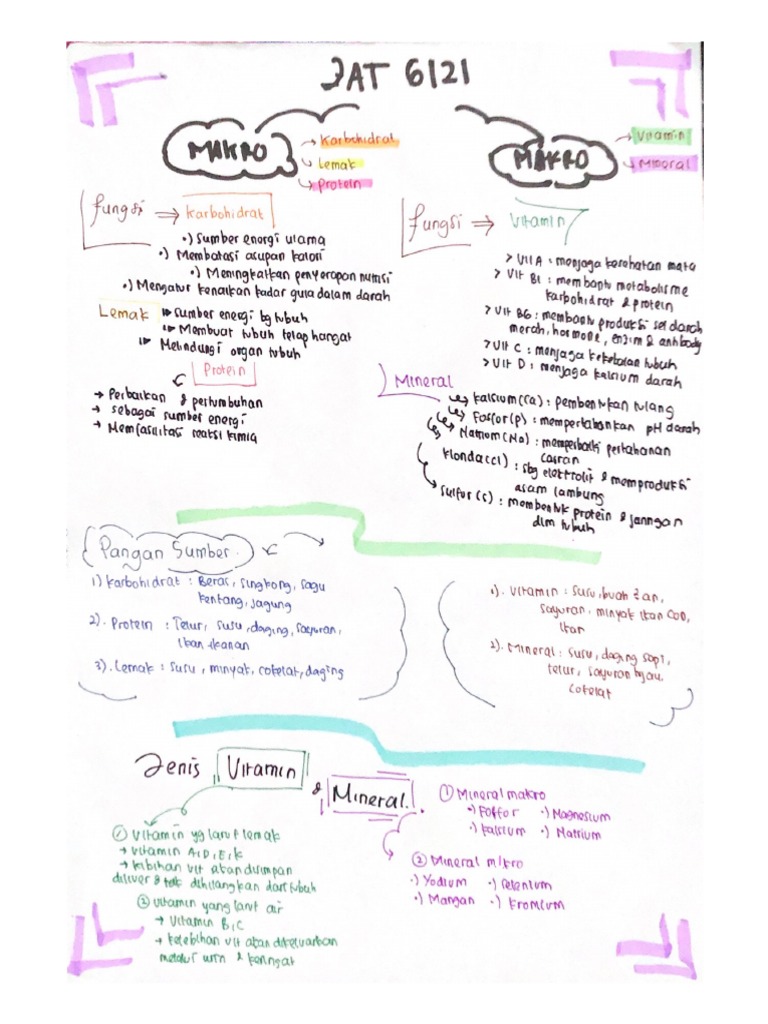 ZAT GIZI
MAKRO
Karbohidrat
Lemak
Protein
MAKRO
Vitamin
Mineral
fungsi ⇒ Karbohidrat
•) Sumber energi utama
•) Membatasi asupan kalori
•) Meningkatkan penyerapan nutrisi
•) Mengatur kenaikan kadar gula dalam darah
Lemak
Sumber energi bg tubuh
Membuat tubuh tetap hangat
Melindungi organ tubuh
Protein
→ Perbaikan & pertumbuhan
→ sebagai sumber energi
→ Memfasilitasi reaksi kimia
fungsi ⇒ Vitamin
> Vit A : menjaga kesehatan mata
> Vit B1 : membantu metabolisme
karbohidrat & protein
> Vit B6 : membantu produksi sel darah
merah, hormone, enzim & antibody
> Vit C : menjaga kekebalan tubuh
> Vit D : menjaga kalsium darah
Mineral
Kalsium (Ca) : pembentukan tulang
Fosfor (P) : mempertahankan pH darah
Natrium (Na) : memperbaiki pertahanan
cairan
Klorida (Cl) : sbg elektrolit & memproduksi
asam lambung
Sulfur (S) : membentuk protein & jaringan
dlm tubuh
Pangan Sumber
1) Karbohidrat : Beras, singkong, sagu
kentang, jagung
2). Protein : Telur, susu, daging, sayuran,
ikan-ikanan
3). Lemak : susu, minyak, cokelat, daging
1). Vitamin : susu, buah 2an,
sayuran, minyak ikan COD,
ikan
2). Mineral : susu, daging sapi,
telur, sayuran hijau,
cokelat
Jenis Vitamin & Mineral.
① Vitamin yg larut lemak
→ Vitamin A, D, E, K
→ kelbihan vit akan disimpan
diliver & tdk dihilangkan dari tubuh
② Vitamin yang larut air
→ Vitamin B, C
→ kelebihan vit akan dikeluarkan
melalui urin & keringat
① Mineral makro
•) Fosfor •) Magnesium
•) Kalsium •) Natrium
② Mineral mikro
•) Yodium •) Selenium
•) Mangan •) Kromium